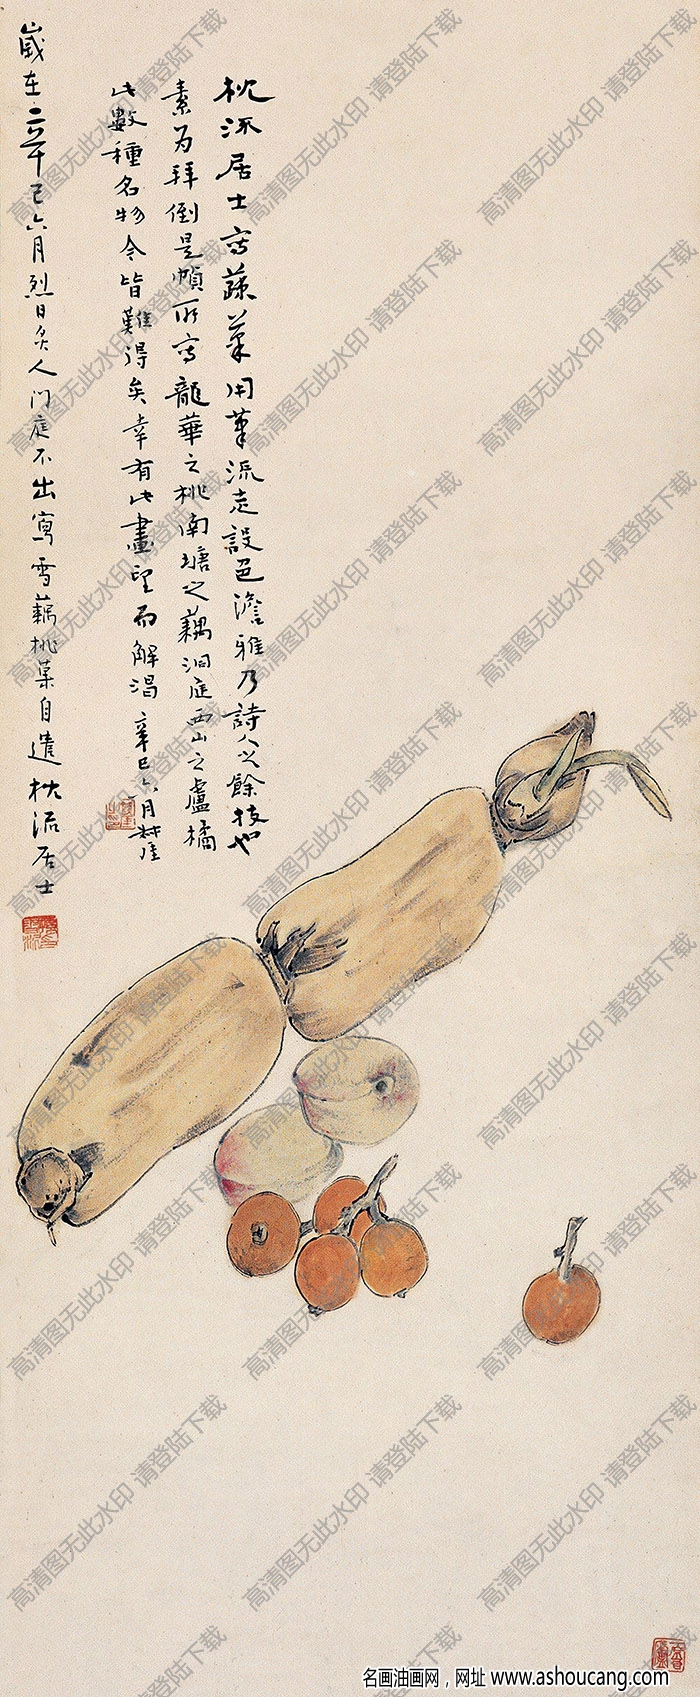 枕流居士寫蔬菓用筆流走設色澹雅乃詩人之餘技也
素为拜倒是幀所寫龍華之桃南塘之藕洞庭西山之盧橘
此數種名物今皆難得矣幸有此畫望而解渴辛巳六月
歲在辛巳六月烈日炙人门庭不出寫雪藕桃菓自遣枕流居士
高清图无此水印 请登陆下载
名画油画网，网址 www.ashoucang.com